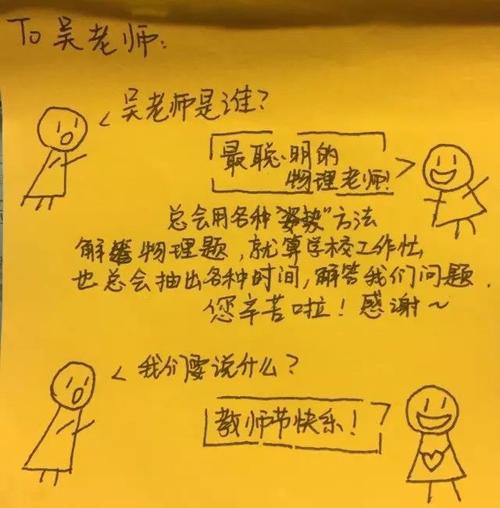 To 吴老师:
吴老师是谁?
最聪明的
物理老师!
总会用各种"姿势"方法
解答物理题,就算学校工作忙,
也总会抽出各种时间,解答我们问题.
您辛苦啦!感谢~
我们要说什么?
教师节快乐!